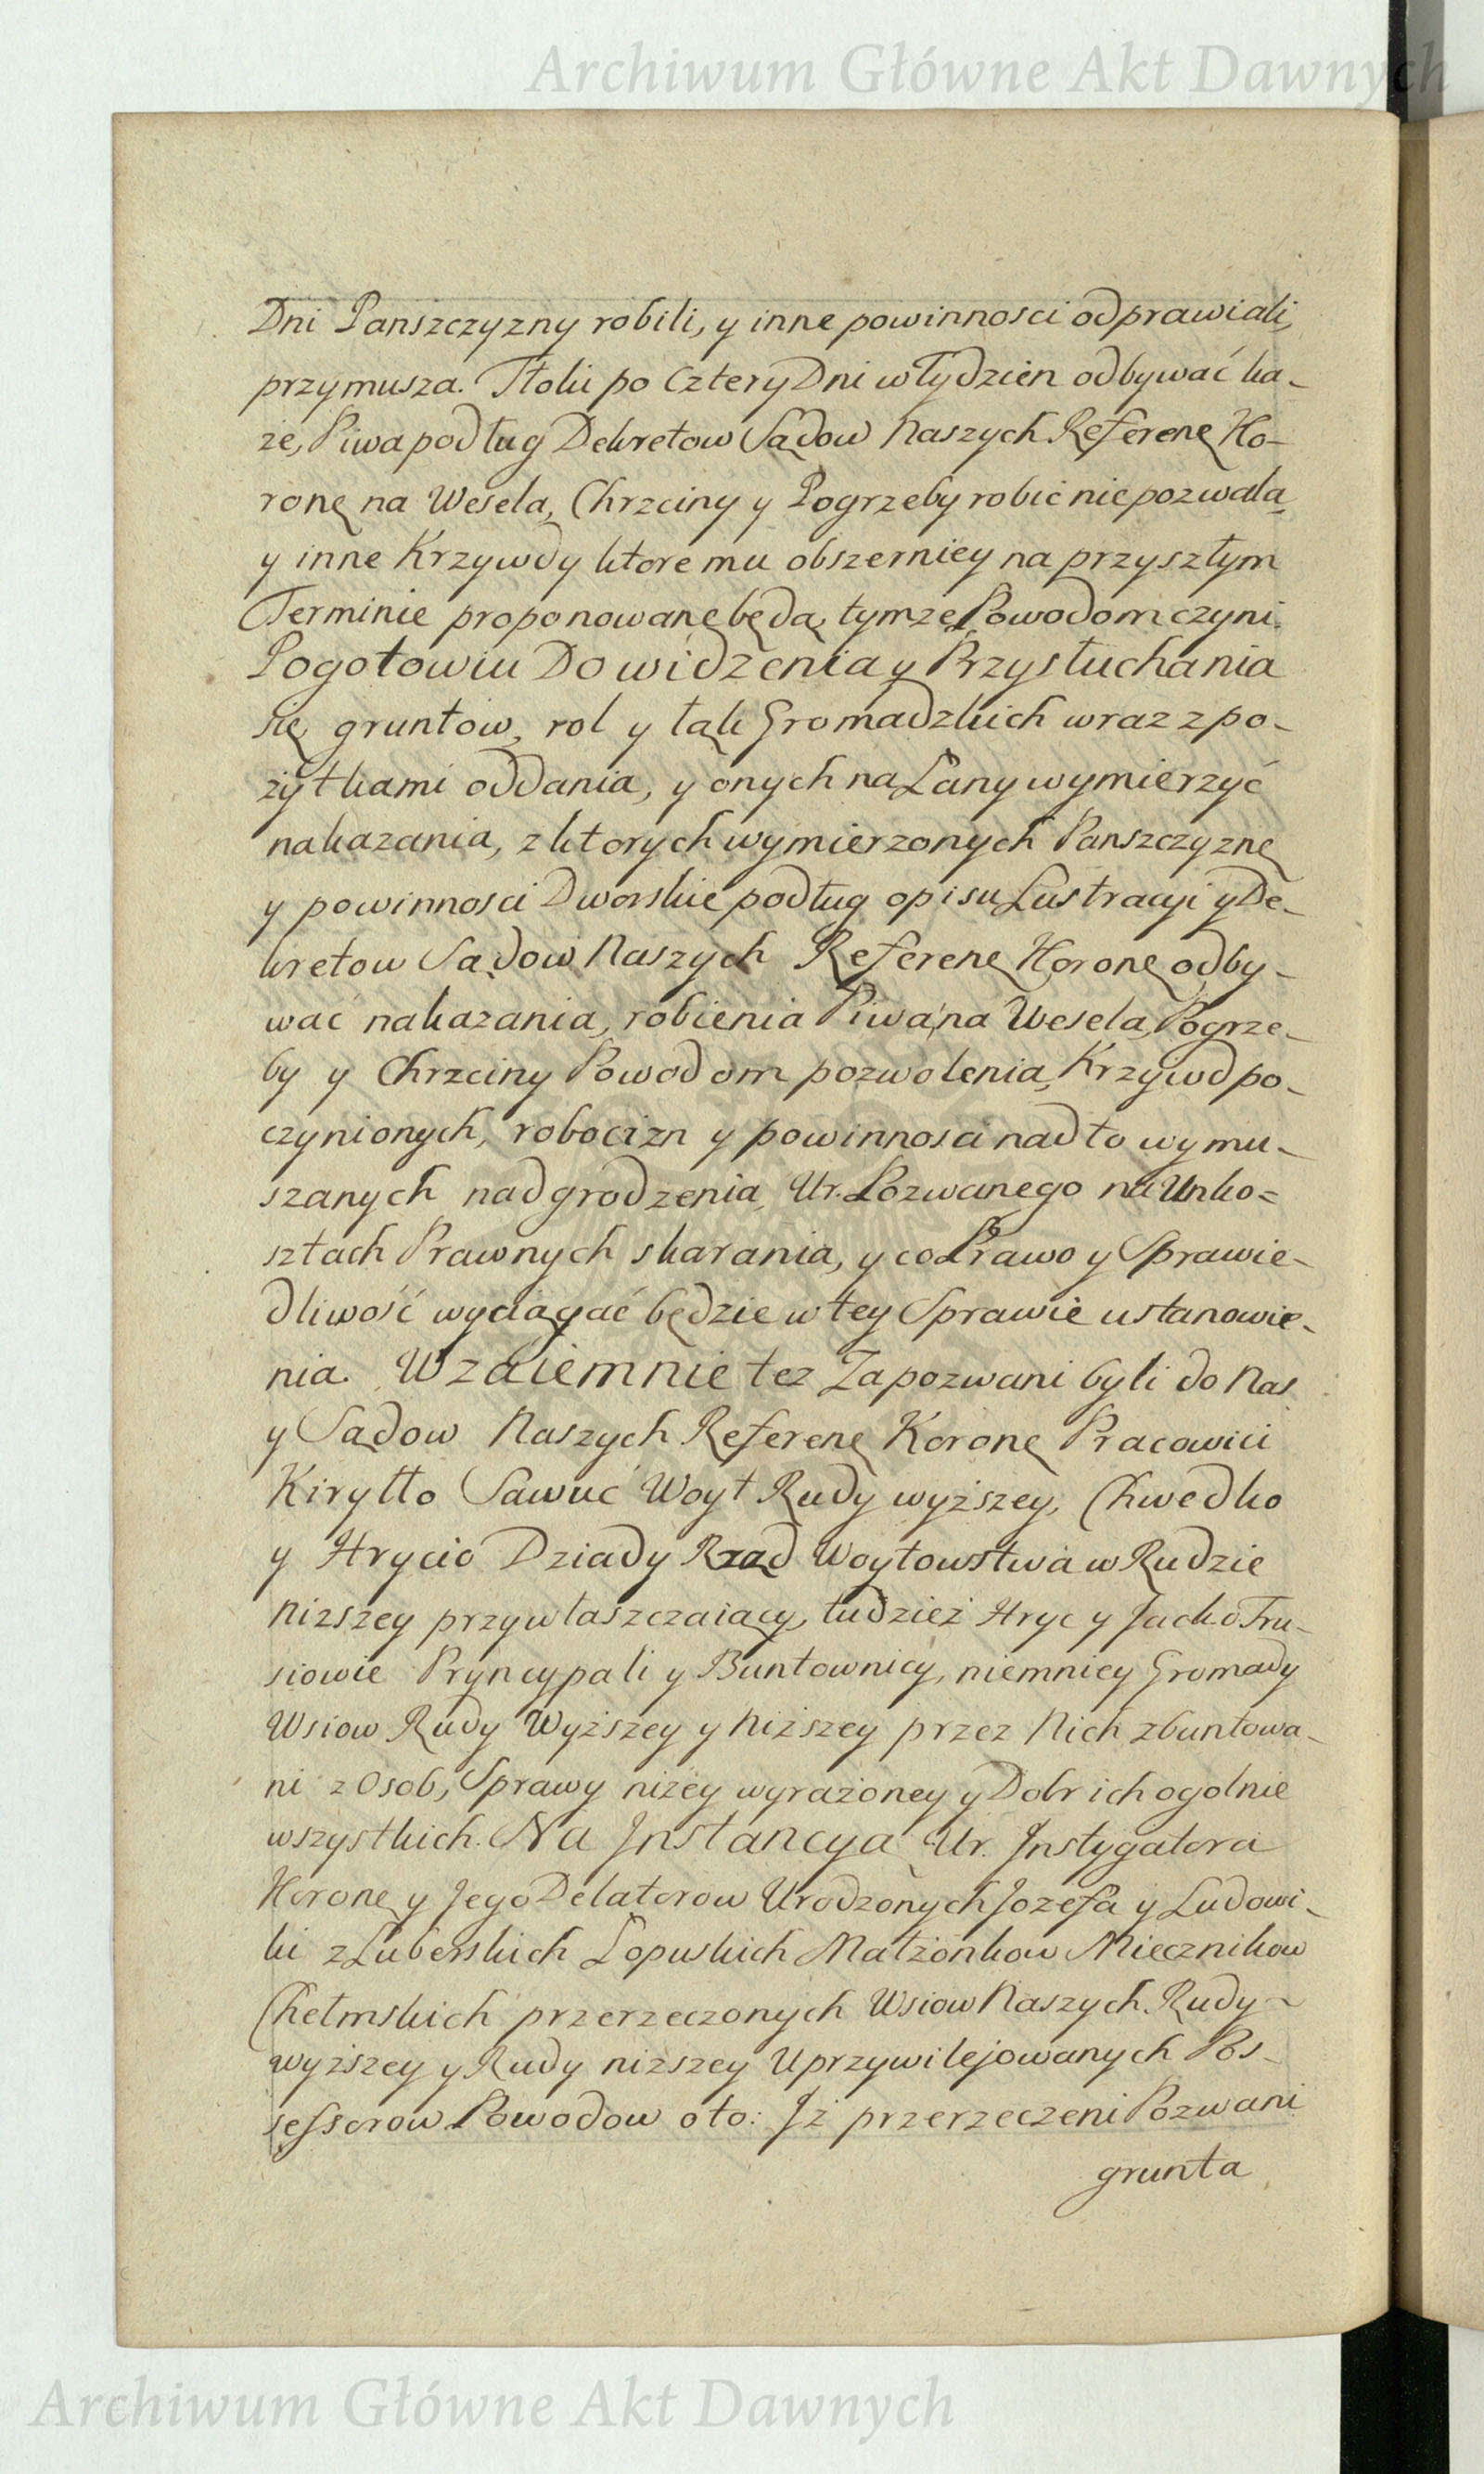 Archiwum Główne Akt Dawnych
Dni Panszczyzny robili, y inne powinnosci odprawiali,
przymusza. Tłoki po Cztery Dni w Tydzien odbywać ka-
że, Piwa podług Dekretow Sądow Naszych Referenę Ko-
ronę na Wesela, Chrzciny y Pogrzeby robić nie pozwala,
y inne Krzywdy ktore mu obszerniey na przyszłym
Terminie proponowane będą, tymże Powodom czyni.
Pogotowiu Do widzenia y Przysłuchania
się gruntow, rol y łąk Gromadzkich wraz z po-
żytkami oddania, y onych na Łany wymierzyć
nakazania, z ktorych wymierzonych Panszczyznę
y powinnosci Dworskie podług opisu Lustracyi y De-
kretow Sądow Naszych Referenę Koronę odby-
wać nakazania, robienia Piwa na Wesela, Pogrze-
by y Chrzciny Powodom pozwolenia, Krzywd po-
czynionych, robocizn y powinnosci nad to wymu-
szanych nadgrodzenia, Ur. Pozwanego na Unko=
sztach Prawnych skarania, y co Prawo y Sprawie-
dliwość wyciągać będzie w tey Sprawie ustanowie-
nia. Wzaiemnie tez Zapozwani byli do Nas
y Sądow Naszych Referenę Koronę Pracowici
Kiryłło Sawuć Woyt Rudy wyższey, Chwedko
y Hrycio Dziady Rząd Woytowstwa w Rudzie
Niższey przywłaszczaiący, tudzież Hryc y Jacko Tru-
siowie Pryncypali y Buntownicy, niemniey Gromady
Wsiow Rudy Wyższey y Niższey przez Nich zbuntowa-
ni z Osob, Sprawy niżey wyrażoney y Dobr ich ogolnie
wszystkich. Na Jnstancyą Ur. Jnstygatora
Koronę y Jego Delatorow Urodzonych Jozefa y Ludowi-
ki z Luberskich Łopuskich Małżonkow Miecznikow
Chełmskich przerzeczonych Wsiow Naszych Rudy
wyższey y Rudy niższey Uprzywilejowanych Pos-
sessorow Powodow oto: Jż przerzeczeni Pozwani
grunta
Archiwum Główne Akt Dawnych